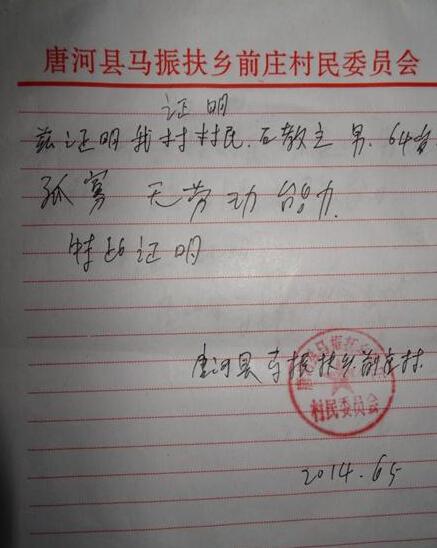 唐河县马振扶乡前庄村民委员会
证明
兹证明我村村民.石教主 男.64岁.
孤寡 无劳动能力.
特此证明
唐河县马振扶乡前庄村
村民委员会
2014.6.5